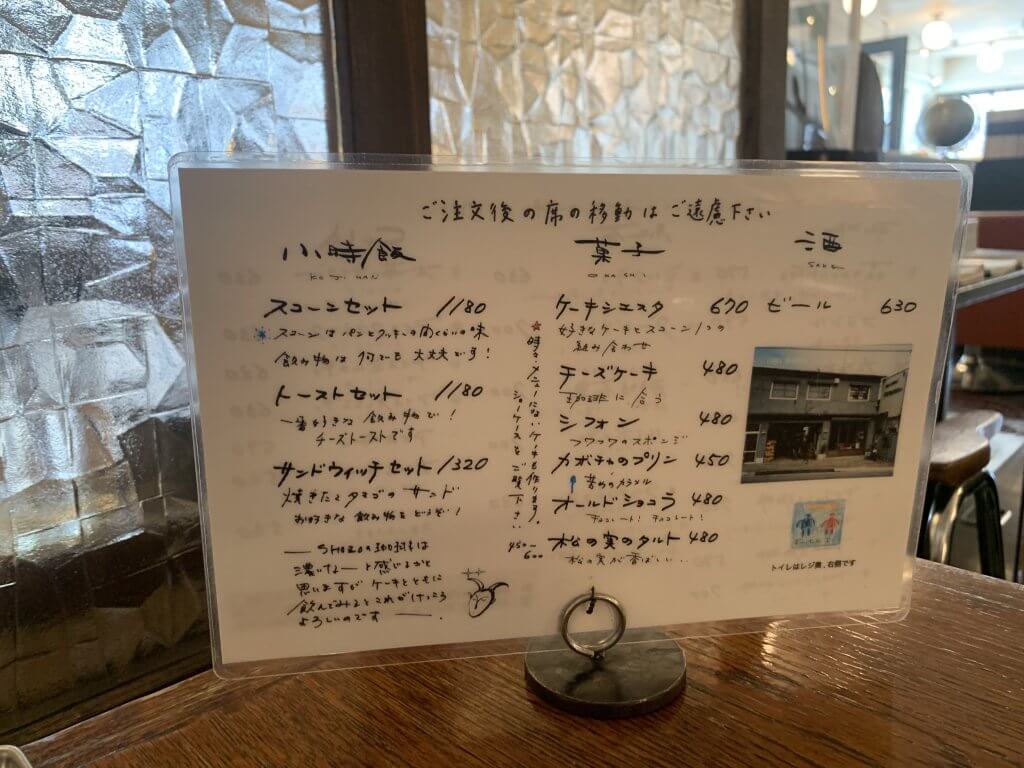 ご注文後の席の移動はご遠慮下さい
小時飯
KOJIHAN
スコーンセット 1180
スコーンはパンとクッキーの間くらいの味
飲み物は何でも大丈夫です!
トーストセット 1180
一番好きな飲み物で!
チーズトーストです
サンドウィッチセット 1320
焼きたてタマゴのサンド
お好きな飲み物をどうぞ!
SHOZOの珈琲は
濃いなーと感じるかと
思いますがケーキとともに
飲んでみるとこれがけっこう
よろしいのです
菓子
OKASHI
★時々、メニューにないケーキも作ります。
ショーケースをご覧下さい
450〜
600
ケーキシエスタ 670
好きなケーキとスコーン1つの
組み合わせ
チーズケーキ 480
珈琲に合う
シフォン 480
フワッフワのスポンジ
カボチャのプリン 450
苦めのカラメル
オールドショコラ 480
チョコレート!チョコレート!
松の実のタルト 480
松の実が香ばしい..
酒
SAKE
ビール 630
トイレはレジ奥、右側です